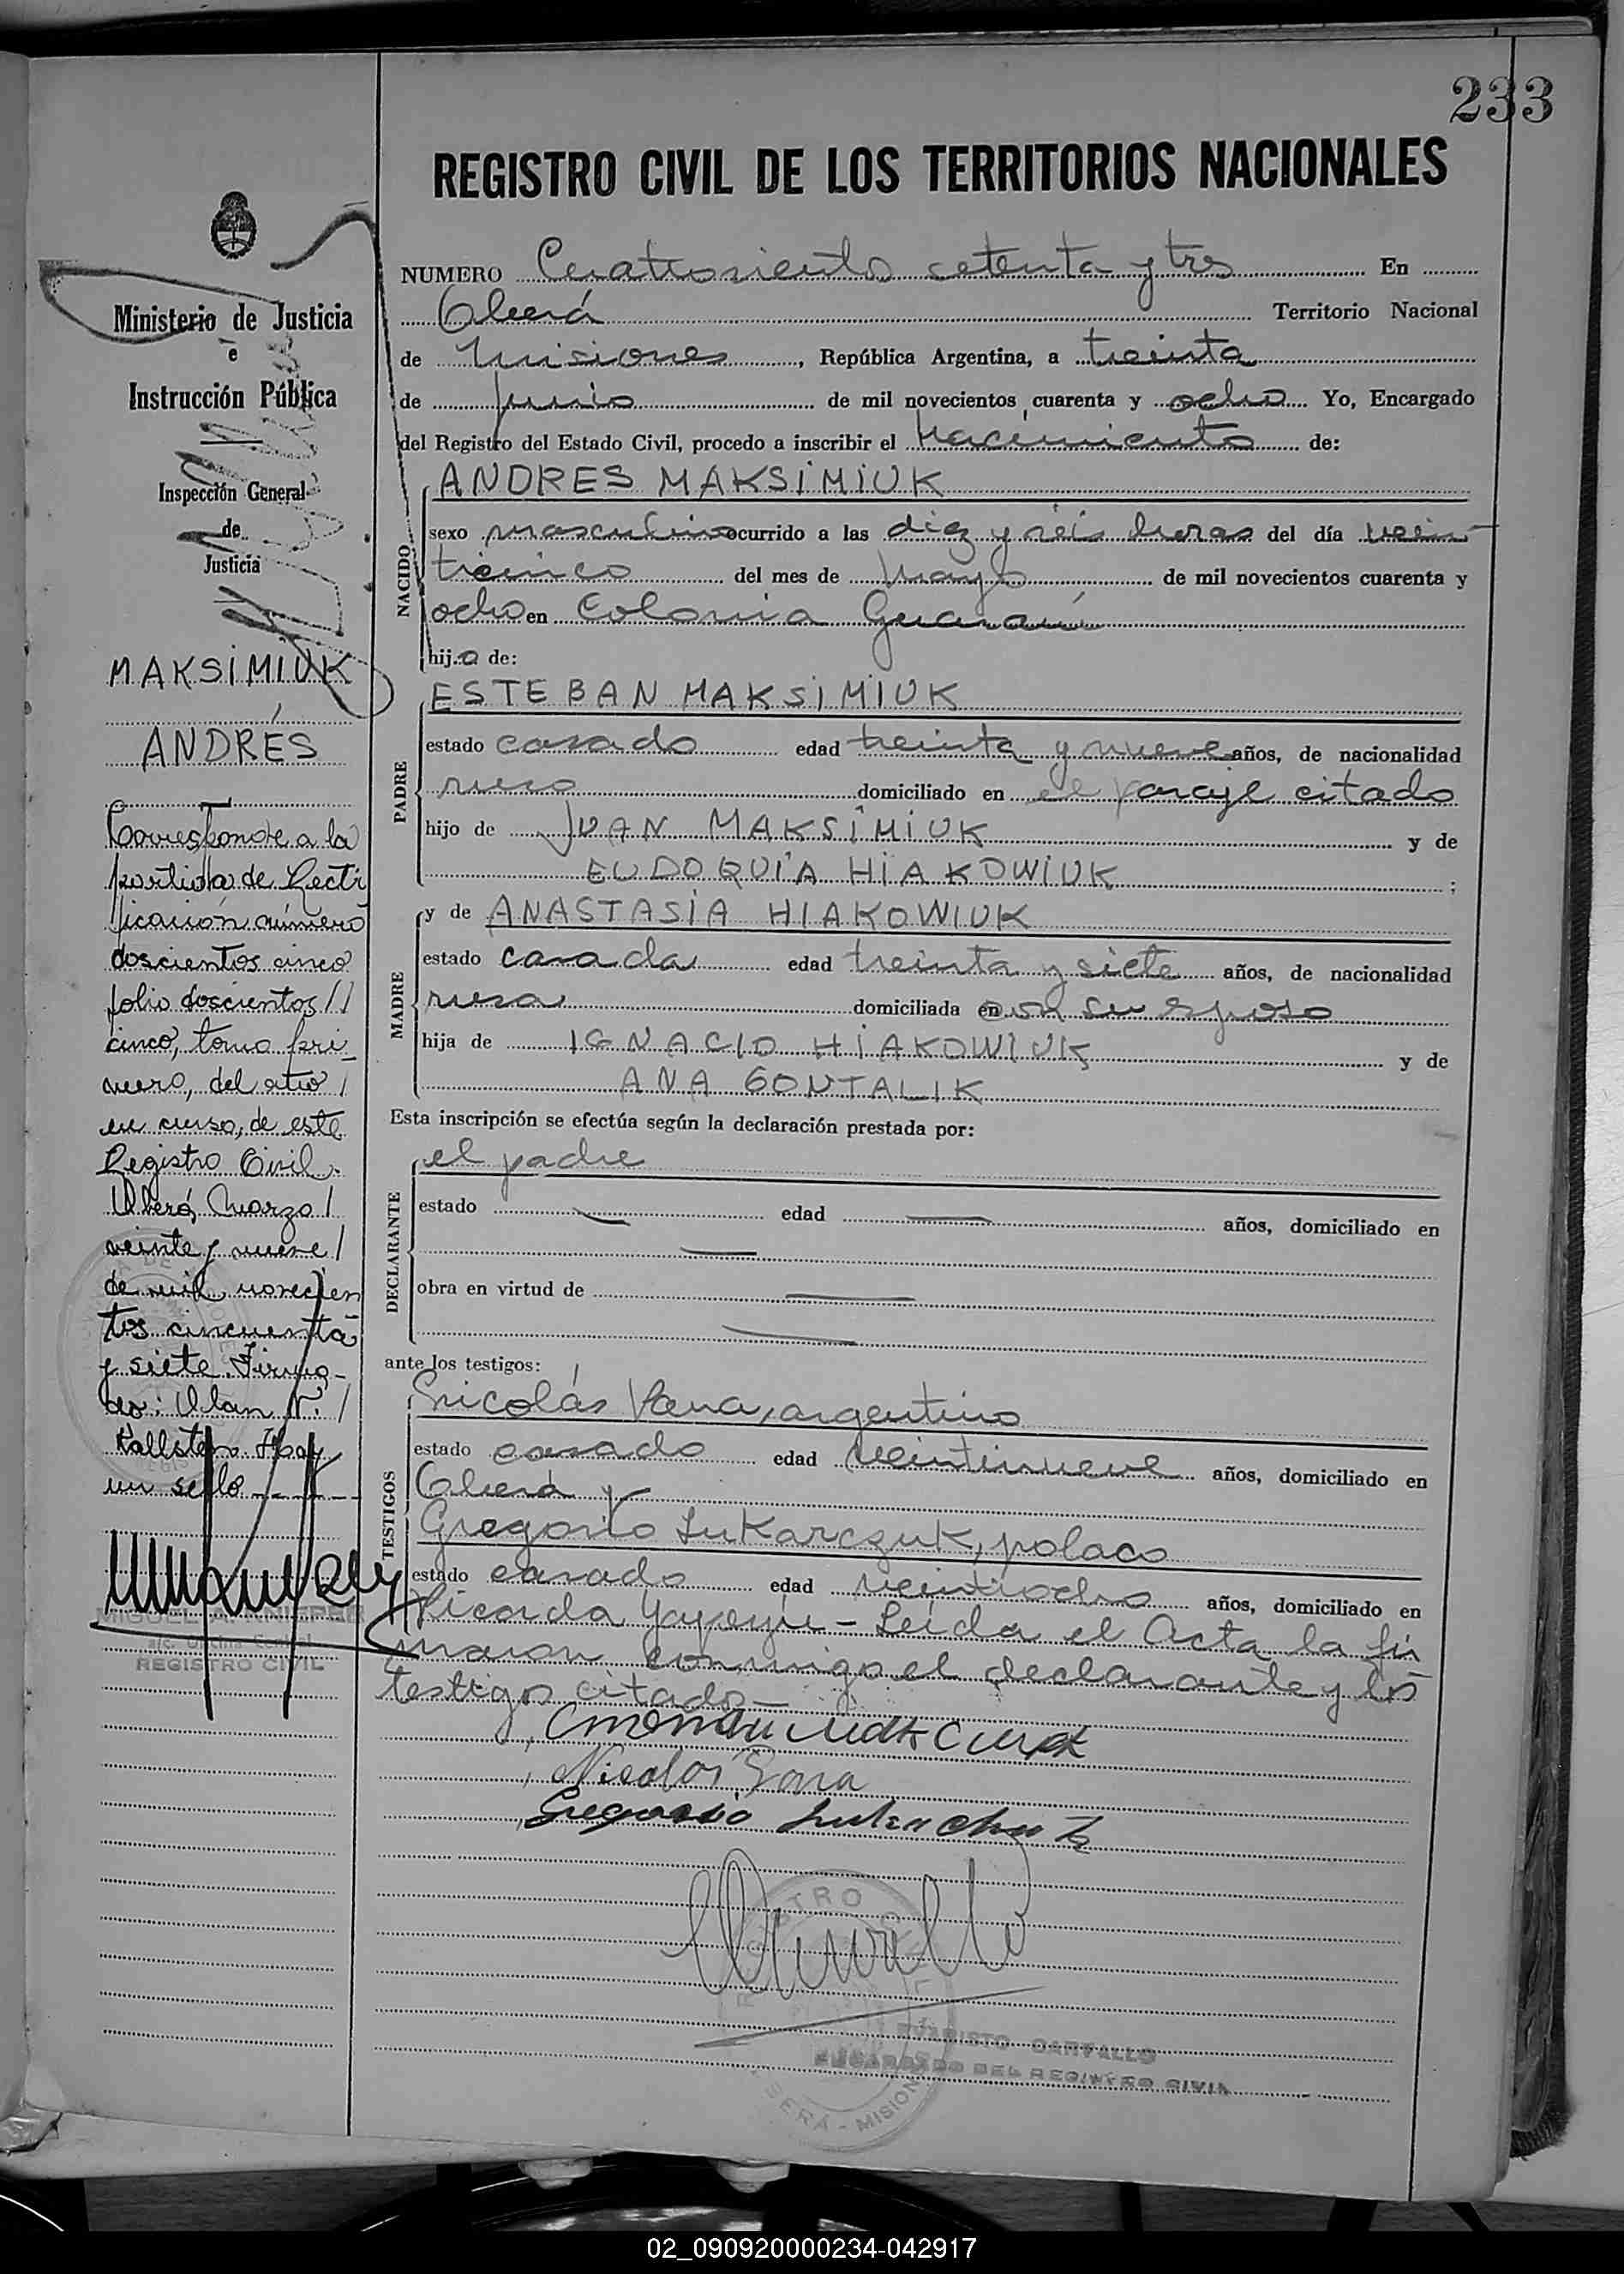 233
REGISTRO CIVIL DE LOS TERRITORIOS NACIONALES
NUMERO Cuatrosiento setenta y tres En
Oberá Territorio Nacional
de Misiones, República Argentina, a treinta
de junio de mil novecientos cuarenta y ocho Yo, Encargado
del Registro del Estado Civil, procedo a inscribir el nacimiento de:
NACIDO
ANDRES MAKSIMIUK
sexo masculino ocurrido a las diez y séis horas del día vein-
ticinco del mes de mayo de mil novecientos cuarenta y
ocho en Colonia Guaraní
hijo de:
PADRE
ESTEBAN MAKSIMIUK
estado casado edad treinta y nueve años, de nacionalidad
ruso domiciliado en el paraje citado
hijo de JUAN MAKSIMIUK y de
EUDOQUIA HIAKOWIUK;
MADRE
y de ANASTASIA HIAKOWIUK
estado casada edad treinta y siete años, de nacionalidad
rusa domiciliada en con su esposo
hija de IGNACIO HIAKOWIUK y de
ANA GONTALIK
Esta inscripción se efectúa según la declaración prestada por:
DECLARANTE
el padre
estado — edad — años, domiciliado en
—
obra en virtud de —
—
ante los testigos:
TESTIGOS
Nicolás argentino
estado casado edad veintinueve años, domiciliado en
Oberá y
Gregorio Lukarczuk, polaco
estado casado edad veintiocho años, domiciliado en
Picada Yapeyú - Leída el Acta la fir
maron conmigo el declarante y los
testigos citados-
Nicolas
Gregorio
REGISTRO
OBERÁ - MISIONES
EVARISTO CARVALLO
ENCARGADO DEL REGISTRO CIVIL
Ministerio de Justicia
e
Instrucción Pública
Inspección General
de
Justicia
MAKSIMIUK
ANDRÉS
Corresponde a la
partida de Recti
ficación número
doscientos cinco
folio doscientos //
cinco, tomo pri_
mero, del año /
en curso, de este
Registro Civil.
Oberá, Marzo /
veinte y nueve /
de mil novecien
tos cincuenta
y siete. Firma-
do: Olan N. /
Kallsten. Hay
un sello
REGISTRO CIVIL
02_090920000234-042917